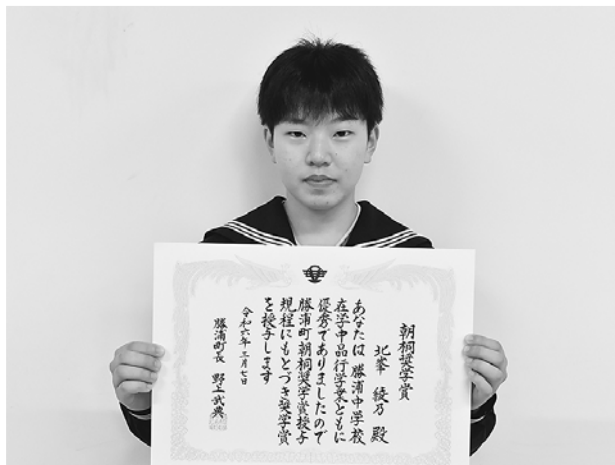 朝桐奨学賞
北峯 綾乃 殿
あなたは 勝浦中学校
在学中品行学業ともに
優秀でありましたので
勝浦町朝桐奨学賞授与
規程にもとづき奨学賞
を授与します
令和六年 三月七日
勝浦町長 野上武典